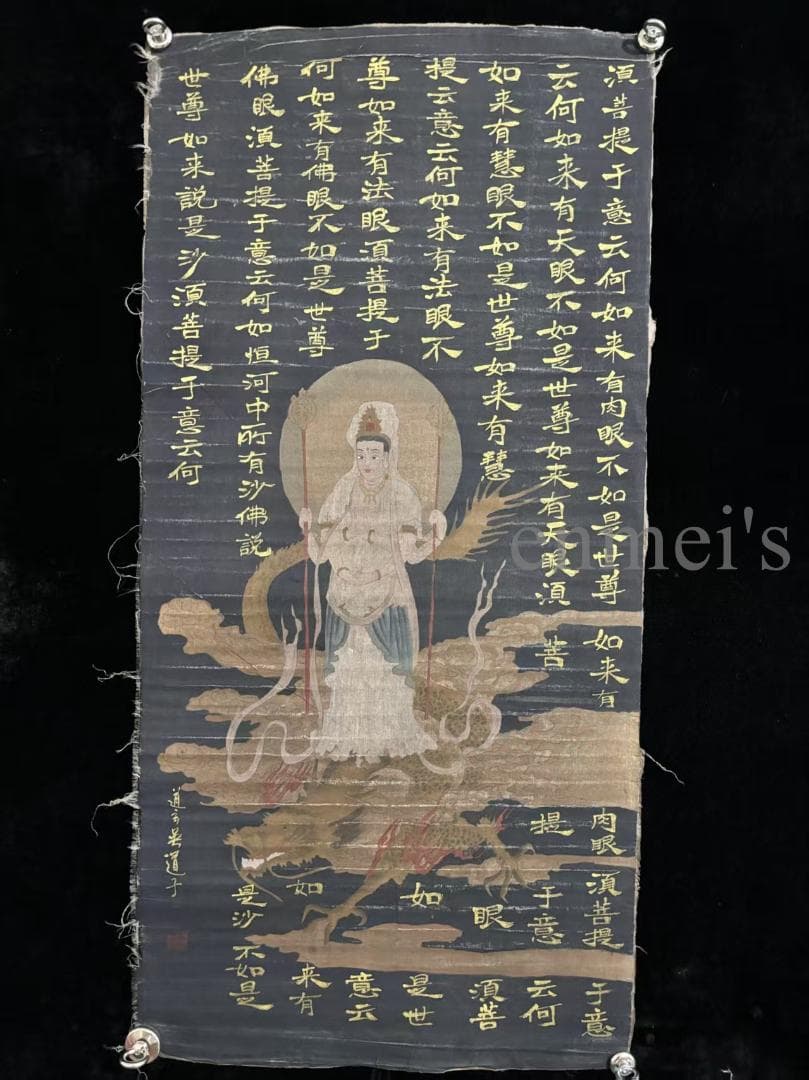 湏菩提于意云何如来有肉眼不如是世尊如来有肉眼湏菩提于意
云何如来有天眼不如是世尊如来有天眼湏菩提于意云何
如来有慧眼不如是世尊如来有慧眼湏菩
提云意云何如来有法眼不如是世
尊如来有法眼湏菩提于意云
何如来有佛眼不如是世尊如来有
佛眼湏菩提于意云何如恒河中所有沙佛説是沙不如是
世尊如来説是沙湏菩提于意云何
道玄吴道子
enmei's